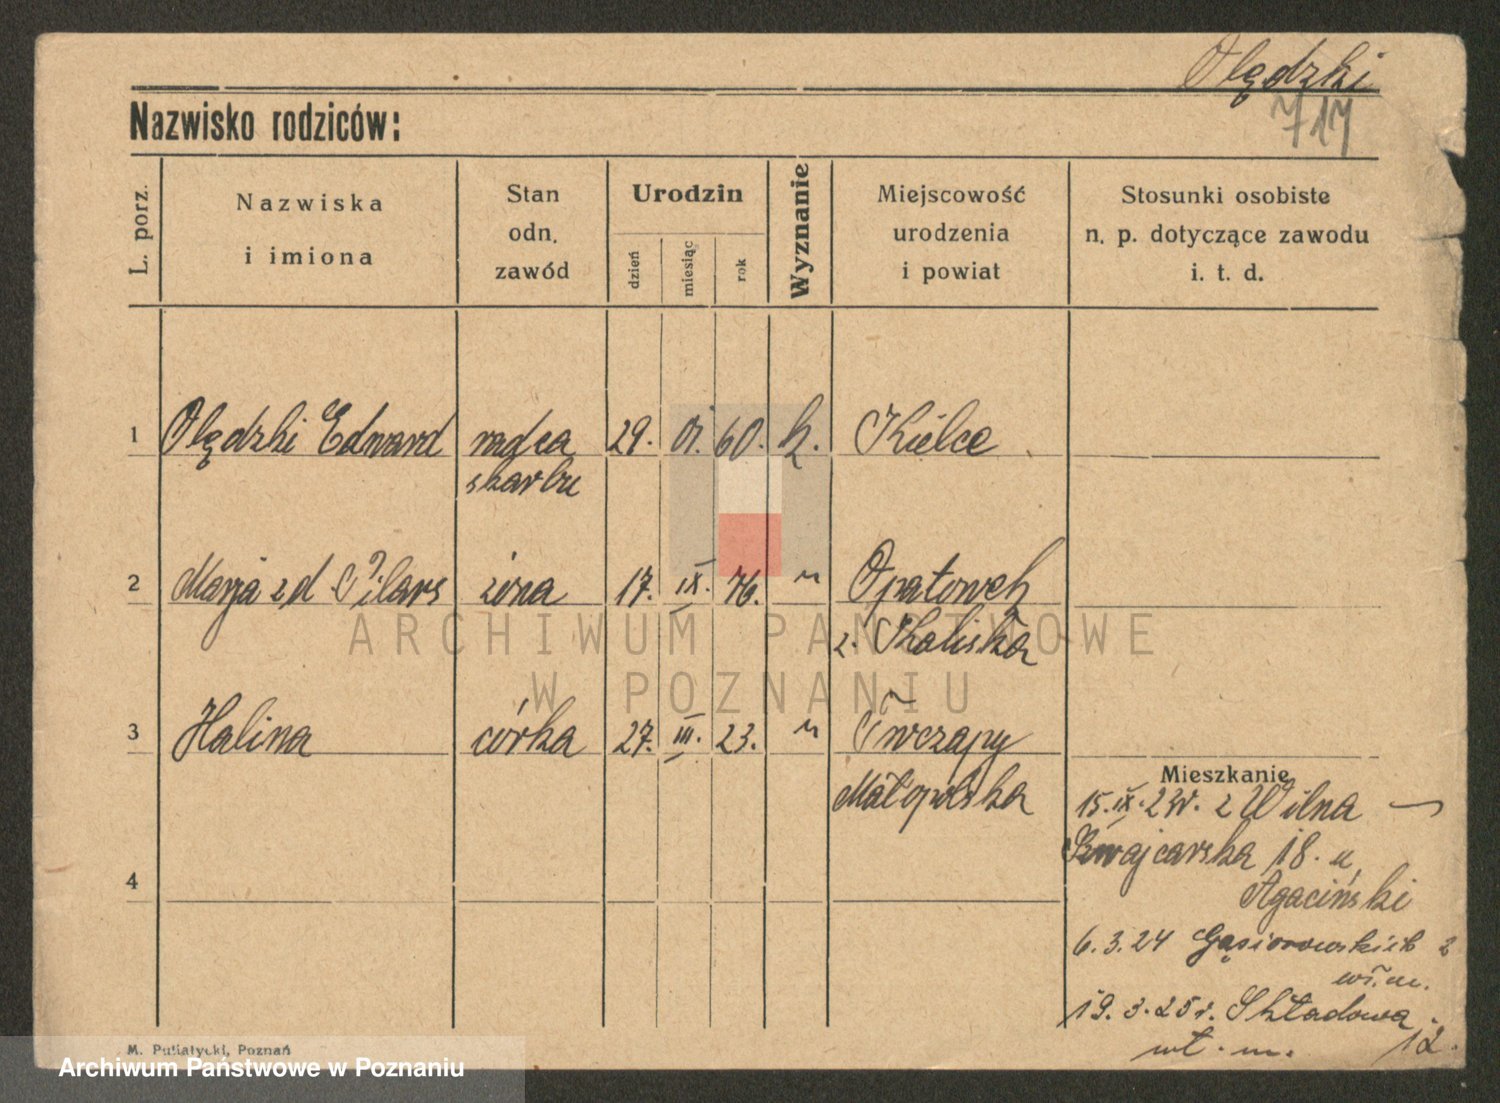 Olędzki
717
Nazwisko rodziców:
L. porz.
Nazwiska
i imiona
Stan
odn.
zawód
Urodzin
dzień
miesiąc
rok
Wyznanie
Miejscowość
urodzenia
i powiat
Stosunki osobiste
n. p. dotyczące zawodu
i. t. d.
1 Olędzki Edward radca 29. 60. k. Kielce
skarbu
2 Marja z d. Pilars żona 17. IX. 76. " Opatówek
z. Kaliska
3 Halina córka 27. III. 23. "
Małopolska
Mieszkanie
15.IX.23r. z Wilna
Szwajcarska 18. u
Agaciński
4
6.3.24 Gąsiorowskich 2
wł. m.
19.3.25r. Składowa
wł. m. 12.
M. Putiatycki, Poznań
ARCHIWUM PAŃSTWOWE
W POZNANIU
Archiwum Państwowe w Poznaniu